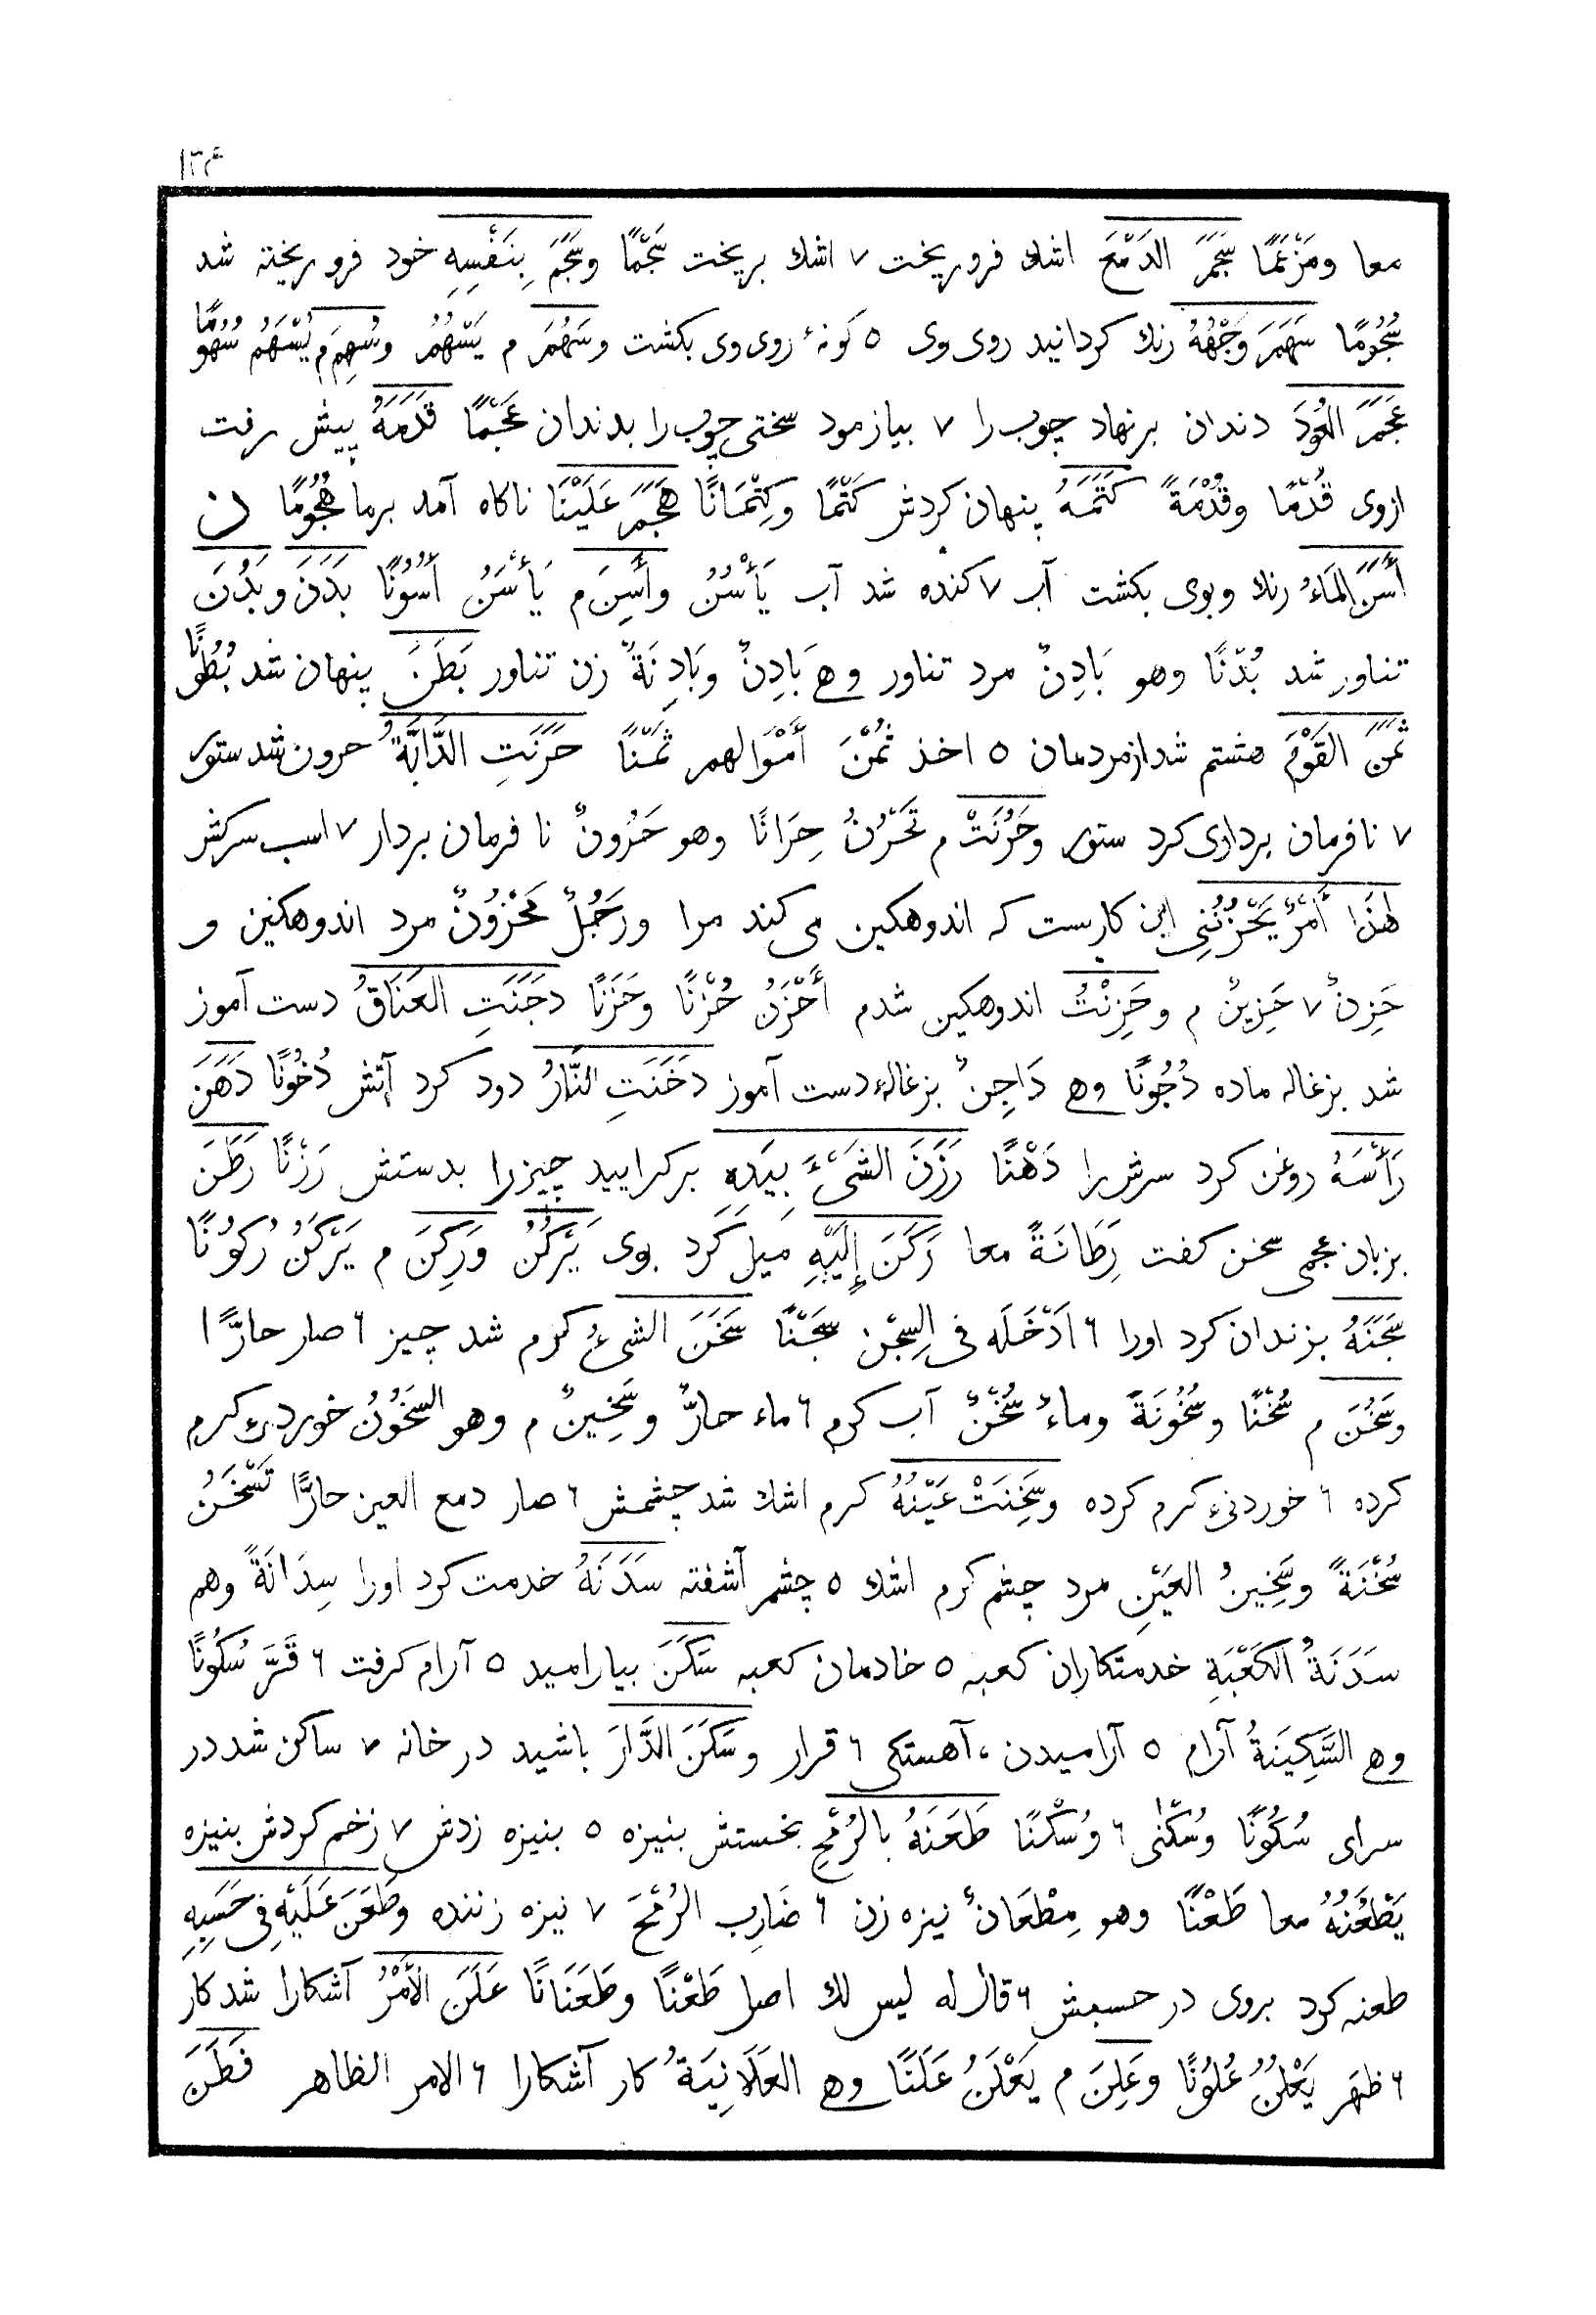 ۱۳۴
معا ومَزْعَمًا سَجَمَ الدَمْعَ اشك فروريخت ۷ اشك بريخت سَجْمًا وسَجَمَ بِنَفْسِهِ خود فرو ريخته شد
سُجُومًا سَهَمَ وَجْهُهُ رنك كردانيد روى وى ٥ كونهٔ روى وى بكشت وسَهُمَ م يَسْهُمُ وسُهِمَ م يُسْهَمُ سُهُومًا
عَجَمَ العُودَ دندان برنهاد چوب را ۷ بيازمود سختى چوب را بدندان عَجْمًا قَدَمَهُ پيش رفت
ازوى قُدْمًا وقُدْمَةً كَتَمَهُ پنهان كردش كَتْمًا وكِتْمَانًا هَجَمَ عَلَيْنَا ناكاه آمد برما هُجُومًا ن
أَسَنَ المَاءُ رنك وبوى بكشت آب ۷ كنده شد آب يَأْسُنُ وأَسِنَ م يَأْسَنُ أُسُونًا بَدَنَ وبَدُنَ
تناور شد بُدْنًا وهو بَادِنٌ مرد تناور وهي بَادِنٌ وبَادِنَةٌ زن تناور بَطَنَ پنهان شد بُطُونًا
ثَمَنَ القَوْمَ هشتم شد ازمردمان ٥ اخذ ثُمْنَ أَمْوَالهم ثَمْنًا حَرَنَتِ الدَّابَّةُ حرون شد ستور
۷ نافرمان بردارى كرد ستور وحَرُنَتْ م تَحْرُنُ حِرَانًا وهو حَرُونٌ نا فرمان بردار ۷ اسب سركش
هٰذَا أَمْرٌ يَحْزُنُنِى اين كاريست كه اندوهكين مى كند مرا ورَجُلٌ مَحْزُونٌ مرد اندوهكين و
حَزِنٌ ۷ حَزِينٌ م وحَزِنْتُ اندوهكين شدم أَحْزَنُ حُزْنًا وحَزَنًا دجَنَتِ العَنَاقُ دست آموز
شد بزغاله ماده دُجُونًا وهي دَاجِنٌ بزغالهٔ دست آموز دخَنَتِ النَّارُ دود كرد آتش دُخُونًا دَهَنَ
رَأْسَهُ روغن كرد سرش را دَهْنًا رَزَنَ الشَىْءَ بِيَدِهِ بركراييد چيزرا بدستش رَزْنًا رَطَنَ
بزبان عجمى سخن كفت رِطَانَةً معا رَكَنَ إِلَيْهِ ميل كرد بوى يَرْكُنُ ورَكِنَ م يَرْكَنُ رُكونًا
سَجَنَهُ بزندان كرد اورا ٦ ادْخَلَه فى السِجْن سَجْنًا سَخَنَ الشىءُ كرم شد چيز ٦ صار حارًّا
وسَخُنَ م سُخْنًا وسُخُونَةً وماءٌ سُخْنٌ آب كرم ٦ ماء حارٌّ وسَخِينٌ م وهو السَخُونُ خوردىٔ كرم
كرده ٦ خوردنىءِ كرم كرده وسَخِنَتْ عَيْنُهُ كرم اشك شد چشمش ٦ صار دمع العين حارًّا تَسْخَنُ
سُخْنَةً وسَخِينُ العَيْنِ مرد چشم كرم اشك ٥ چشم آشفته سَدَنَهُ خدمت كرد اورا سِدَانَةً وهم
سَدَنَةُ الكَعْبَةِ خدمتكاران كعبه ٥ خادمان كعبه سَكَنَ بياراميد ٥ آرام كرفت ٦ قَرَّ سُكُونًا
وهي السَّكِينَةُ آرام ٥ آراميدن، آهستكى ٦ قرار وسَكَنَ الدَّارَ باشيد در خانه ۷ ساكن شد در
سراى سُكُونًا وسُكْنٰى ٦ وسُكْنًا طَعَنَهُ بالرُمْحِ بخستش بنيزه ٥ بنيزه زدش ۷ زخم كردش بنيزه
يَطْعُنُهُ معا طَعْنًا وهو مِطْعَانٌ نيزه زن ٦ ضَارِب الرُمْحَ ۷ نيزه زننده وطَعَنَ عَلَيْهِ فى حَسَبِهِ
طعنه كرد بروى در حسبش ٦ قال له ليس لك اصل طَعْنًا وطَعَنَانًا عَلَنَ الأَمْرُ آشكارا شد كار
٦ ظهر يَعْلُنُ عُلُونًا وعَلِنَ م يَعْلَنُ عَلَنًا وهي العَلَانِيَةُ كار آشكارا ٦ الامر الظاهر فَطَنَ